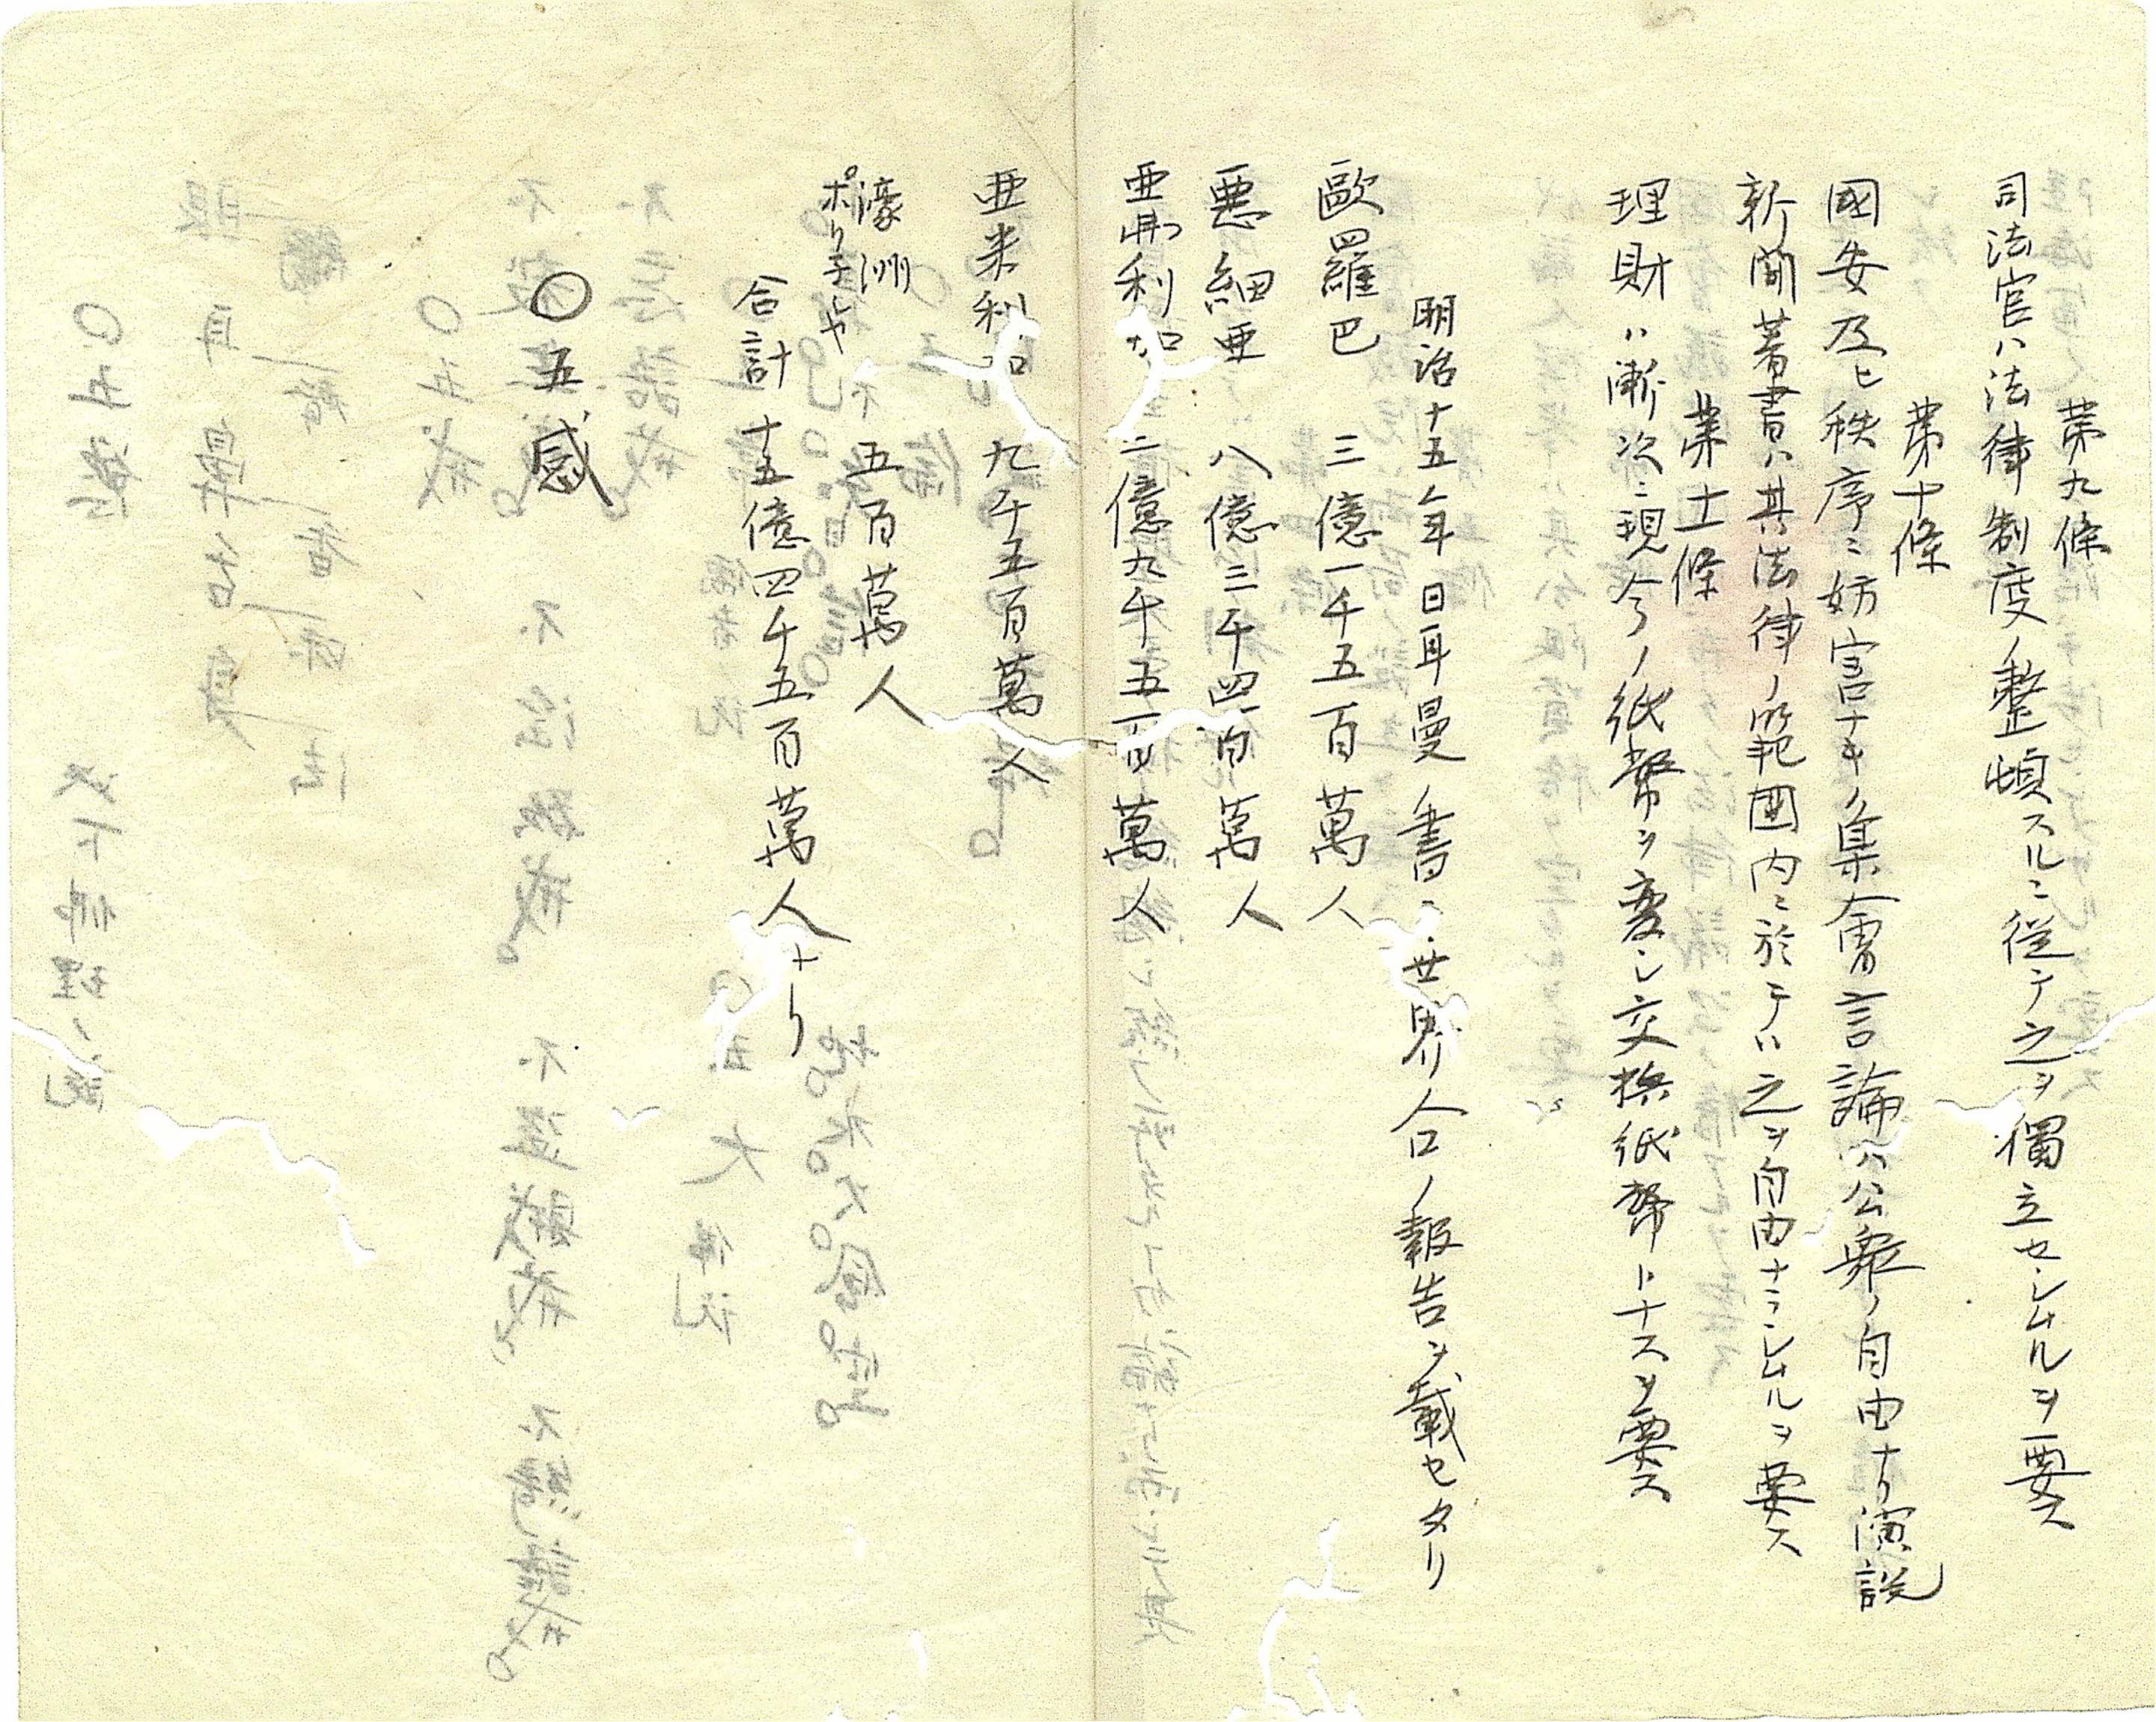 第九條
司法官ハ法律制度ノ整頓スルニ従テ之ヲ獨立セシムルヲ要ス
第十條
國安及ヒ秩序ニ妨害ナキ集會言論ハ公衆ノ自由ナリ演説
新聞著書ハ其法律ノ範囲内ニ於テハ之ヲ自由ナラシムルヲ要ス
第十一條
理財ハ漸次ニ現今ノ紙幣ヲ変シ交換紙幣トナスヲ要ス
明治十五年日耳曼書ニ世界人口ノ報告ヲ載セタリ
歐羅巴 三億一千五百萬人
悪細亜 八億三千四百萬人
亜弗利加 二億九千五百萬人
亜米利加 九千五百萬人
濠洲 五百萬人
ポリ子シヤ
合計 十五億四千五百萬人ナリ
〇五感